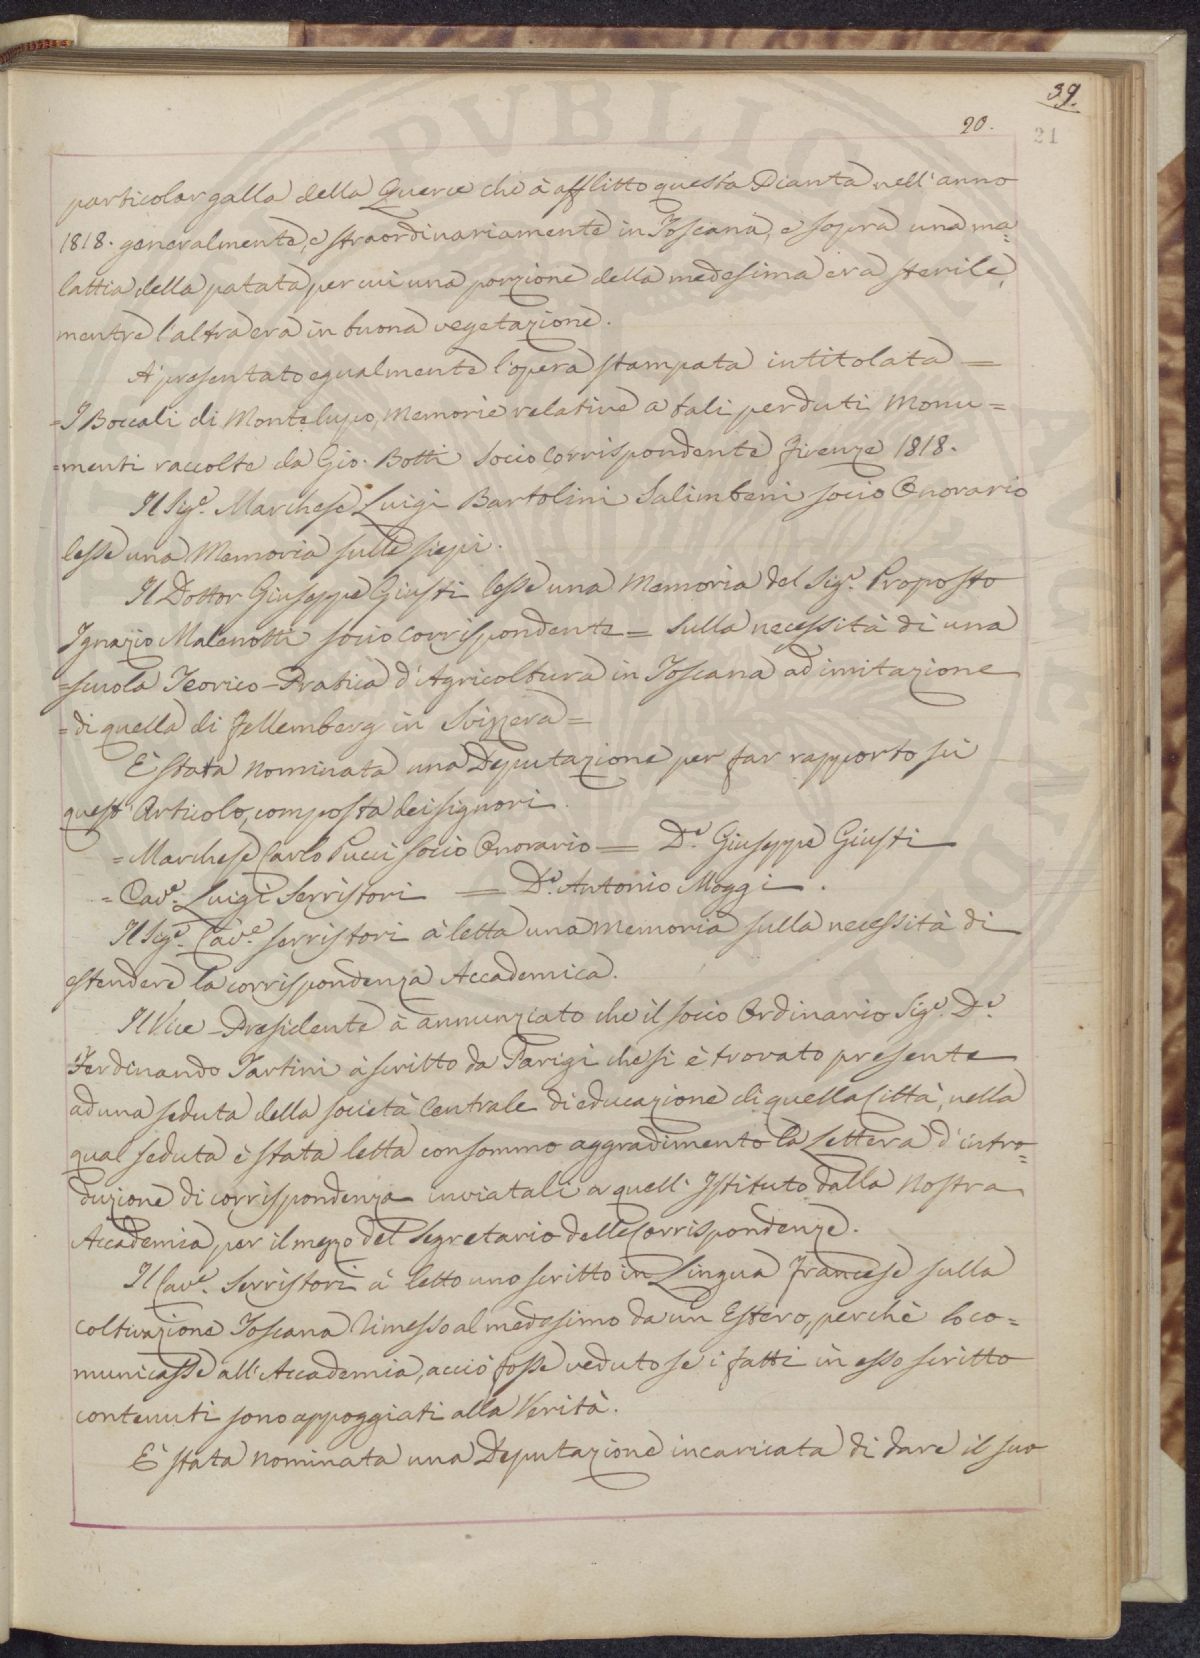 39.
20.
21
particolar galla della Querce che à afflitto questa Pianta nell'anno
1818. generalmente, e straordinariamente in Toscana, e sopra una ma=
lattia della patata, per cui una porzione della medesima era sterile,
mentre l'altra era in buona vegetazione.
A' presentato egualmente l'opera stampata intitolata =
=I Boccali di Montelupo, Memorie relative a tali perduti Monu=
=menti raccolte da Gio. Botti Socio Corrispondente Firenze 1818.
Il Sig.e Marchese Luigi Bartolini Salimbeni socio Onorario
lesse una Memoria sulle siepi.
Il Dottor Giuseppe Giusti lesse una Memoria del Sig.e Proposto
Ignazio Malenotti socio Corrispondente = Sulla necessità di una
=scuola Teorico-Pratica d'Agricoltura in Toscana ad imitazione
=di quella di Fellemberg in Svizzera=
E' stata nominata una Deputazione per far rapporto su
quest'Articolo, composta dei signori.
=Marchese Carlo Pucci Socio Onorario = D.e Giuseppe Giusti
=Cav.e Luigi Serristori = D.e Antonio Moggi.
Il Sig.e Cav.e Serristori à letta una Memoria sulla necessità di
estendere la corrispondenza Accademica.
Il Vice-Presidente à annunziato che il socio Ordinario Sig.e D.e
Ferdinando Tartini à scritto da Parigi che si è trovato presente
ad una seduta della società Centrale di educazione di quella Città, nella
qual seduta è stata letta con sommo aggradimento la Lettera d'intro=
duzione di corrispondenza inviatali a quell'Istituto dalla Nostra
Accademia, per il mezzo del Segretario delle Corrispondenze.
Il Cav.e Serristori à letto uno scritto in Lingua Francese sulla
coltivazione Toscana rimesso al medesimo da un Estero, perchè lo co=
municasse all'Accademia, acciò fosse veduto se i fatti in esso scritto
contenuti sono appoggiati alla Verità.
E' stata nominata una Deputazione incaricata di dare il suo